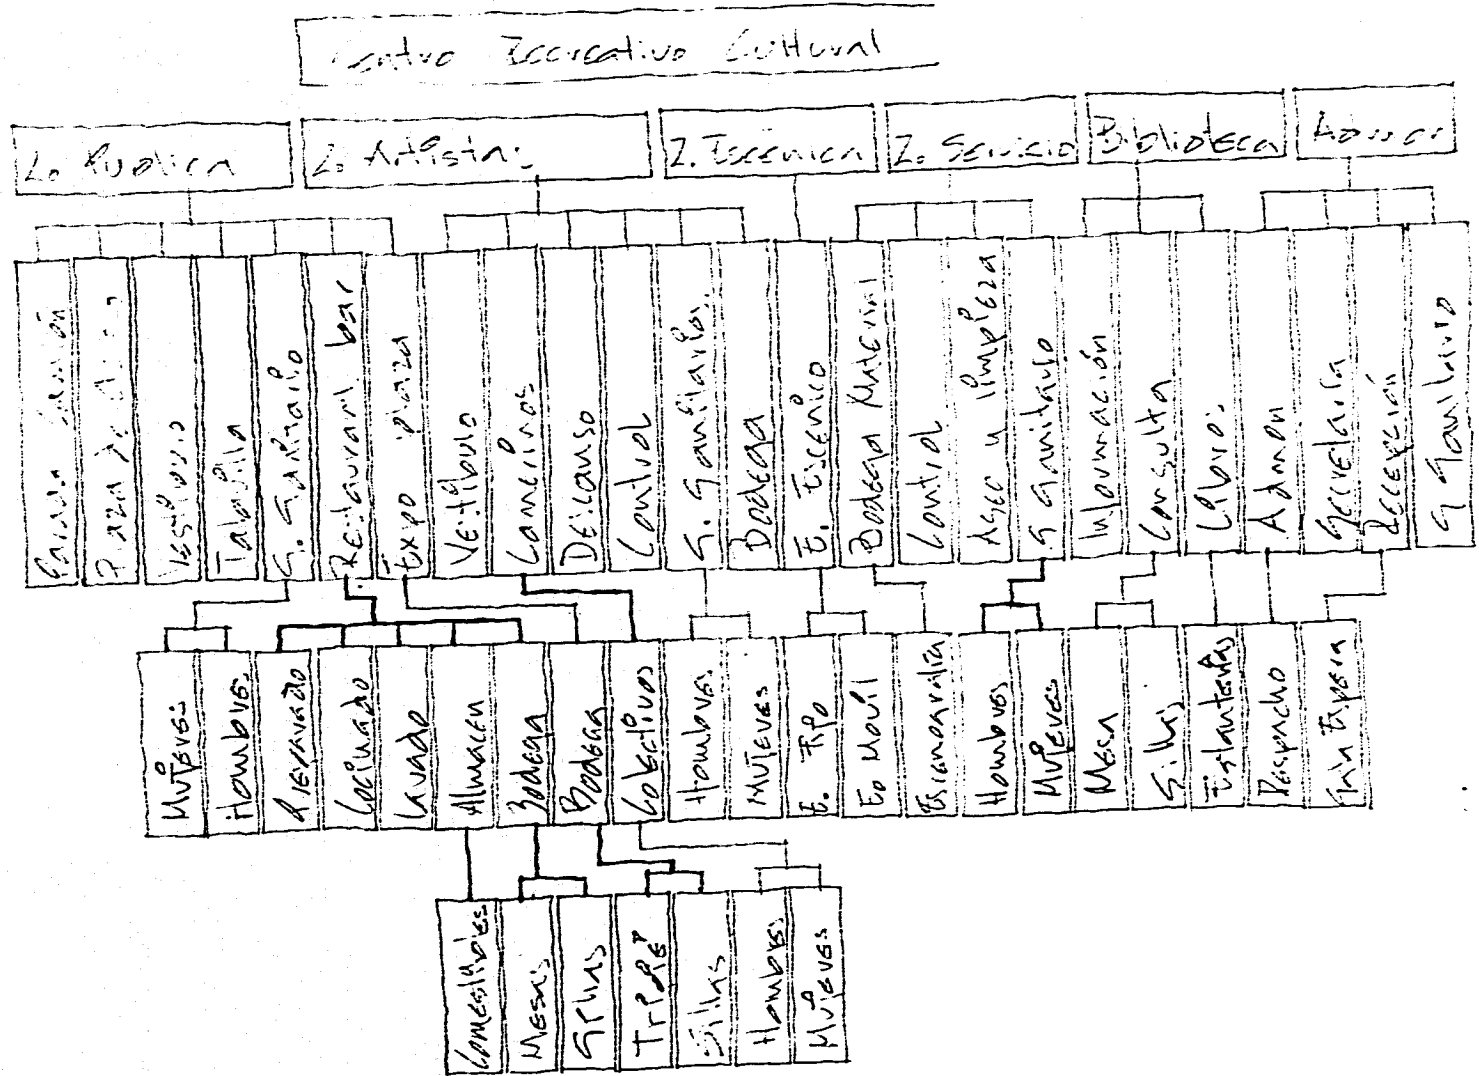 Centro Recreativo Cultural
Z. Publica
Z. Artistas
Z. Escenica
Z. Servicio
Biblioteca
Admon
Plaza de
Vestibulo
Taquilla
S. Sanitario
Restaurant bar
Expo plaza
Vestibulo
Camerinos
Descanso
Control
S. Sanitarios
Bodega
E. Escenico
Bodega Material
Control
Aseo y limpieza
S Sanitario
Información
Consulta
Libros
Admon
Secretaria
Recepción
S Sanitario
Mujeres
Hombres
Preparado
Cocinado
Lavado
Almacen
Bodega
Bodega
Colectivos
Hombres
Mujeres
E. Fijo
E. Movil
Escenografia
Hombres
Mujeres
Mesa
Sillas
Estanterias
Despacho
Sala Espera
Comestibles
Mesas
Sillas
Tripie
Sillas
Hombres
Mujeres